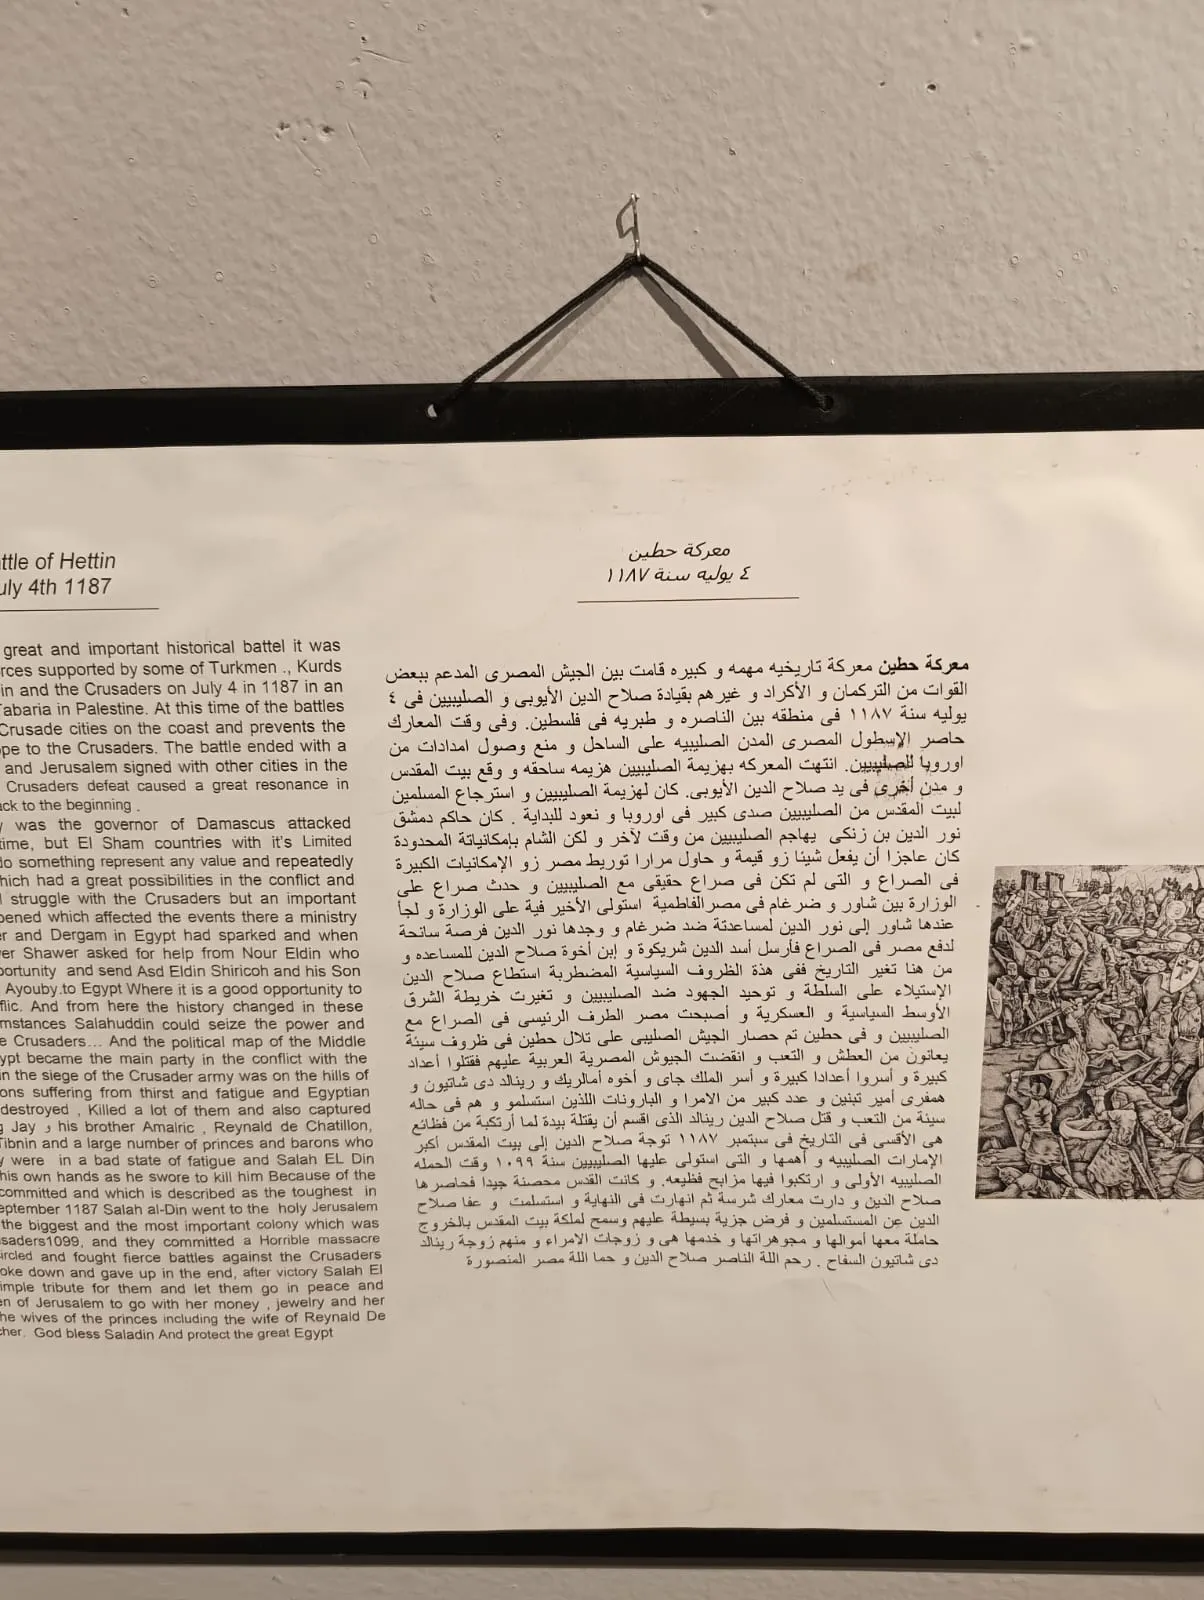 ttle of Hettin
uly 4th 1187
great and important historical battel it was
rces supported by some of Turkmen ., Kurds
in and the Crusaders on July 4 in 1187 in an
Tabaria in Palestine. At this time of the battles
Crusade cities on the coast and prevents the
ope to the Crusaders. The battle ended with a
and Jerusalem signed with other cities in the
Crusaders defeat caused a great resonance in
ack to the beginning .
y was the governor of Damascus attacked
time, but El Sham countries with it's Limited
do something represent any value and repeatedly
hich had a great possibilities in the conflict and
l struggle with the Crusaders but an important
pened which affected the events there a ministry
er and Dergam in Egypt had sparked and when
ver Shawer asked for help from Nour Eldin who
portunity and send Asd Eldin Shiricoh and his Son
Ayouby.to Egypt Where it is a good opportunity to
flic. And from here the history changed in these
mstances Salahuddin could seize the power and
e Crusaders... And the political map of the Middle
ypt became the main party in the conflict with the
in the siege of the Crusader army was on the hills of
ons suffering from thirst and fatigue and Egyptian
destroyed , Killed a lot of them and also captured
g Jay و his brother Amalric , Reynald de Chatillon,
Tibnin and a large number of princes and barons who
y were in a bad state of fatigue and Salah EL Din
his own hands as he swore to kill him Because of the
committed and which is described as the toughest in
eptember 1187 Salah al-Din went to the holy Jerusalem
the biggest and the most important colony which was
saders1099, and they committed a Horrible massacre
ircled and fought fierce battles against the Crusaders
oke down and gave up in the end, after victory Salah El
imple tribute for them and let them go in peace and
en of Jerusalem to go with her money , jewelry and her
he wives of the princes including the wife of Reynald De
cher. God bless Saladin And protect the great Egypt
معركة حطين
٤ يوليه سنة ١١٨٧
معركة حطين معركة تاريخيه مهمه و كبيره قامت بين الجيش المصرى المدعم ببعض
القوات من التركمان و الأكراد و غيرهم بقيادة صلاح الدين الأيوبى و الصليبيين فى ٤
يوليه سنة ١١٨٧ فى منطقه بين الناصره و طبريه فى فلسطين. وفى وقت المعارك
حاصر الإسطول المصرى المدن الصليبيه على الساحل و منع وصول امدادات من
اوروبا للصليبيين. انتهت المعركه بهزيمة الصليبيين هزيمه ساحقه و وقع بيت المقدس
و مدن أخرى فى يد صلاح الدين الأيوبى. كان لهزيمة الصليبيين و استرجاع المسلمين
لبيت المقدس من الصليبيين صدى كبير فى اوروبا و نعود للبداية . كان حاكم دمشق
نور الدين بن زنكى يهاجم الصليبيين من وقت لآخر و لكن الشام بإمكانياتة المحدودة
كان عاجزا أن يفعل شيئا زو قيمة و حاول مرارا توريط مصر زو الإمكانيات الكبيرة
فى الصراع و التى لم تكن فى صراع حقيقى مع الصليبيين و حدث صراع على
الوزارة بين شاور و ضرغام فى مصرالفاطمية استولى الأخير فية على الوزارة و لجأ
عندها شاور إلى نور الدين لمساعدتة ضد ضرغام و وجدها نور الدين فرصة سانحة
لدفع مصر فى الصراع فأرسل أسد الدين شريكوة و إبن أخوة صلاح الدين للمساعده و
من هنا تغير التاريخ ففى هذة الظروف السياسية المضطربة استطاع صلاح الدين
الإستيلاء على السلطة و توحيد الجهود ضد الصليبيين و تغيرت خريطة الشرق
الأوسط السياسية و العسكرية و أصبحت مصر الطرف الرئيسى فى الصراع مع
الصليبيين و فى حطين تم حصار الجيش الصليبى على تلال حطين فى ظروف سيئة
يعانون من العطش و التعب و انقضت الجيوش المصرية العربية عليهم فقتلوا أعداد
كبيرة و أسروا أعدادا كبيرة و أسر الملك جاى و أخوه أمالريك و رينالد دى شاتيون و
همفرى أمير تبنين و عدد كبير من الامرا و البارونات اللذين استسلمو و هم فى حاله
سيئة من التعب و قتل صلاح الدين رينالد الذى اقسم أن يقتلة بيدة لما أرتكبة من فظائع
هى الأقسى فى التاريخ فى سبتمبر ١١٨٧ توجة صلاح الدين إلى بيت المقدس أكبر
الإمارات الصليبيه و أهمها و التى استولى عليها الصليبيين سنة ١٠٩٩ وقت الحمله
الصليبيه الأولى و ارتكبوا فيها مزابح فظيعه. و كانت القدس محصنة جيدا فحاصرها
صلاح الدين و دارت معارك شرسة ثم انهارت فى النهاية و استسلمت و عفا صلاح
الدين عن المستسلمين و فرض جزية بسيطة عليهم وسمح لملكة بيت المقدس بالخروج
حاملة معها أموالها و مجوهراتها و خدمها هى و زوجات الامراء و منهم زوجة رينالد
دى شاتيون السفاح . رحم اللة الناصر صلاح الدين و حما اللة مصر المنصورة